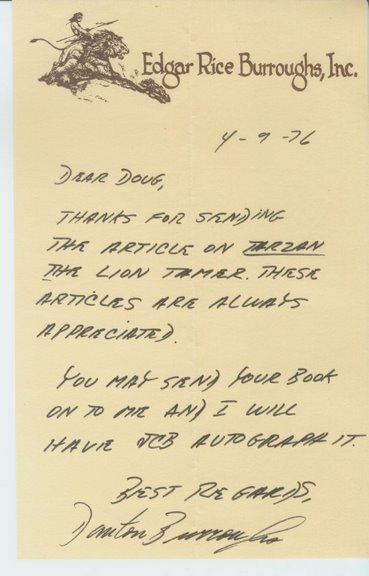 Edgar Rice Burroughs, Inc.
4-9-76
DEAR DOUG,
THANKS FOR SENDING
THE ARTICLE ON TARZAN
THE LION TAMER. THESE
ARTICLES ARE ALWAYS
APPRECIATED.
YOU MAY SEND YOUR BOOK
ON TO ME AND I WILL
HAVE JCB AUTOGRAPH IT.
BEST REGARDS,
Danton Burroughs